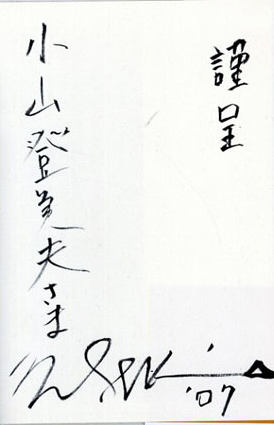 謹呈
小山登美夫さま
'07